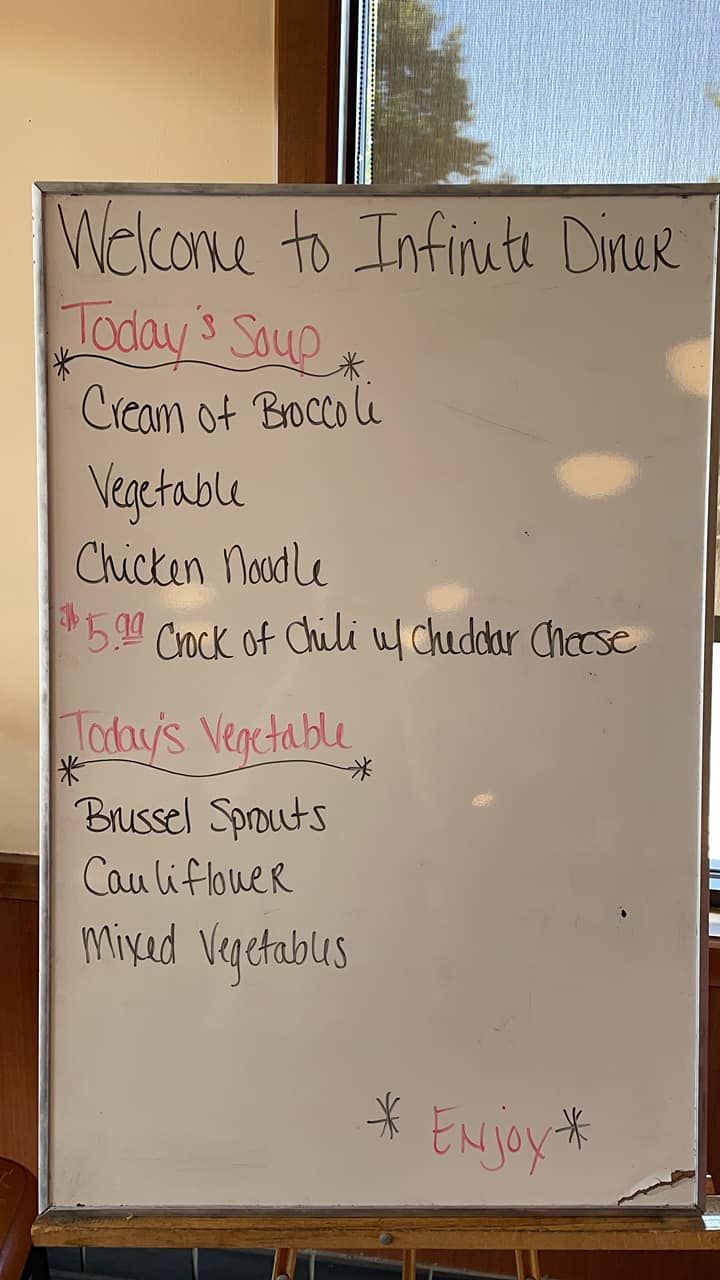 Welcome to Infinite Diner
Today's Soup
Cream of Broccoli
Vegetable
Chicken Noodle
$5.99 Crock of Chili w/ Cheddar Cheese
Today's Vegetable
Brussel Sprouts
Cauliflower
Mixed Vegetables
* Enjoy *